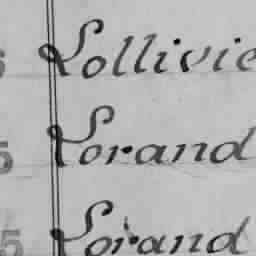 5 Lollivie
5 Lorand
5 Lorand